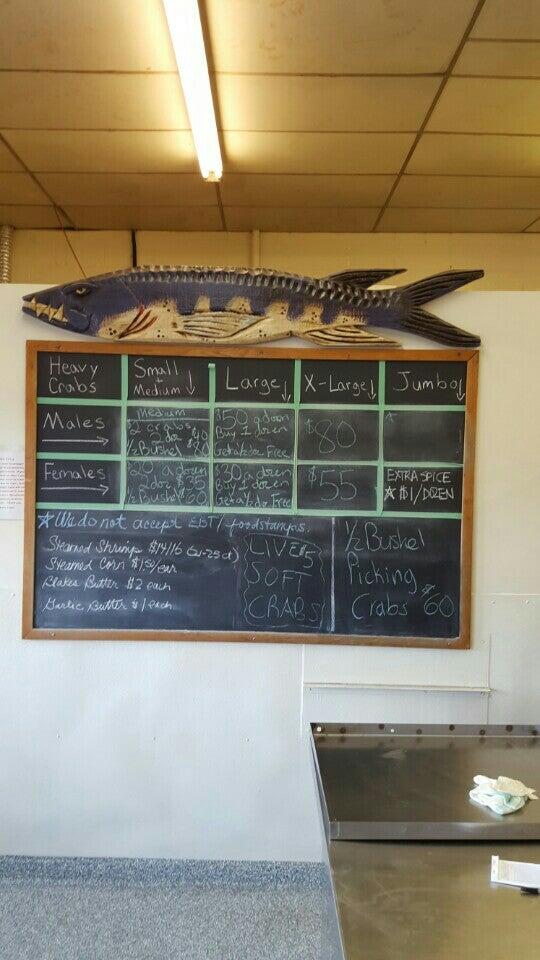 Heavy Crabs
Small + Medium ↓
Large ↓
X-Large ↓
Jumbo ↓
Males
Medium
2 doz $40
1/2 Bushel $80
$50 a dozen
Buy 1 dozen
Get 1/2 doz Free
$80
Females
20 a dozen
2 doz $35
1/2 Bushel $60
$30 a dozen
Buy 1 dozen
Get 1/2 doz Free
$55
EXTRA SPICE
★ $1/DOZEN
★ We do not accept EBT/foodstamps.
Steamed Shrimp $14/lb
Steamed Corn $1.50/ear
Blakes Butter $2 each
Garlic Butter $1 each
LIVE $5
SOFT
CRABS
1/2 Bushel
Picking
Crabs $60